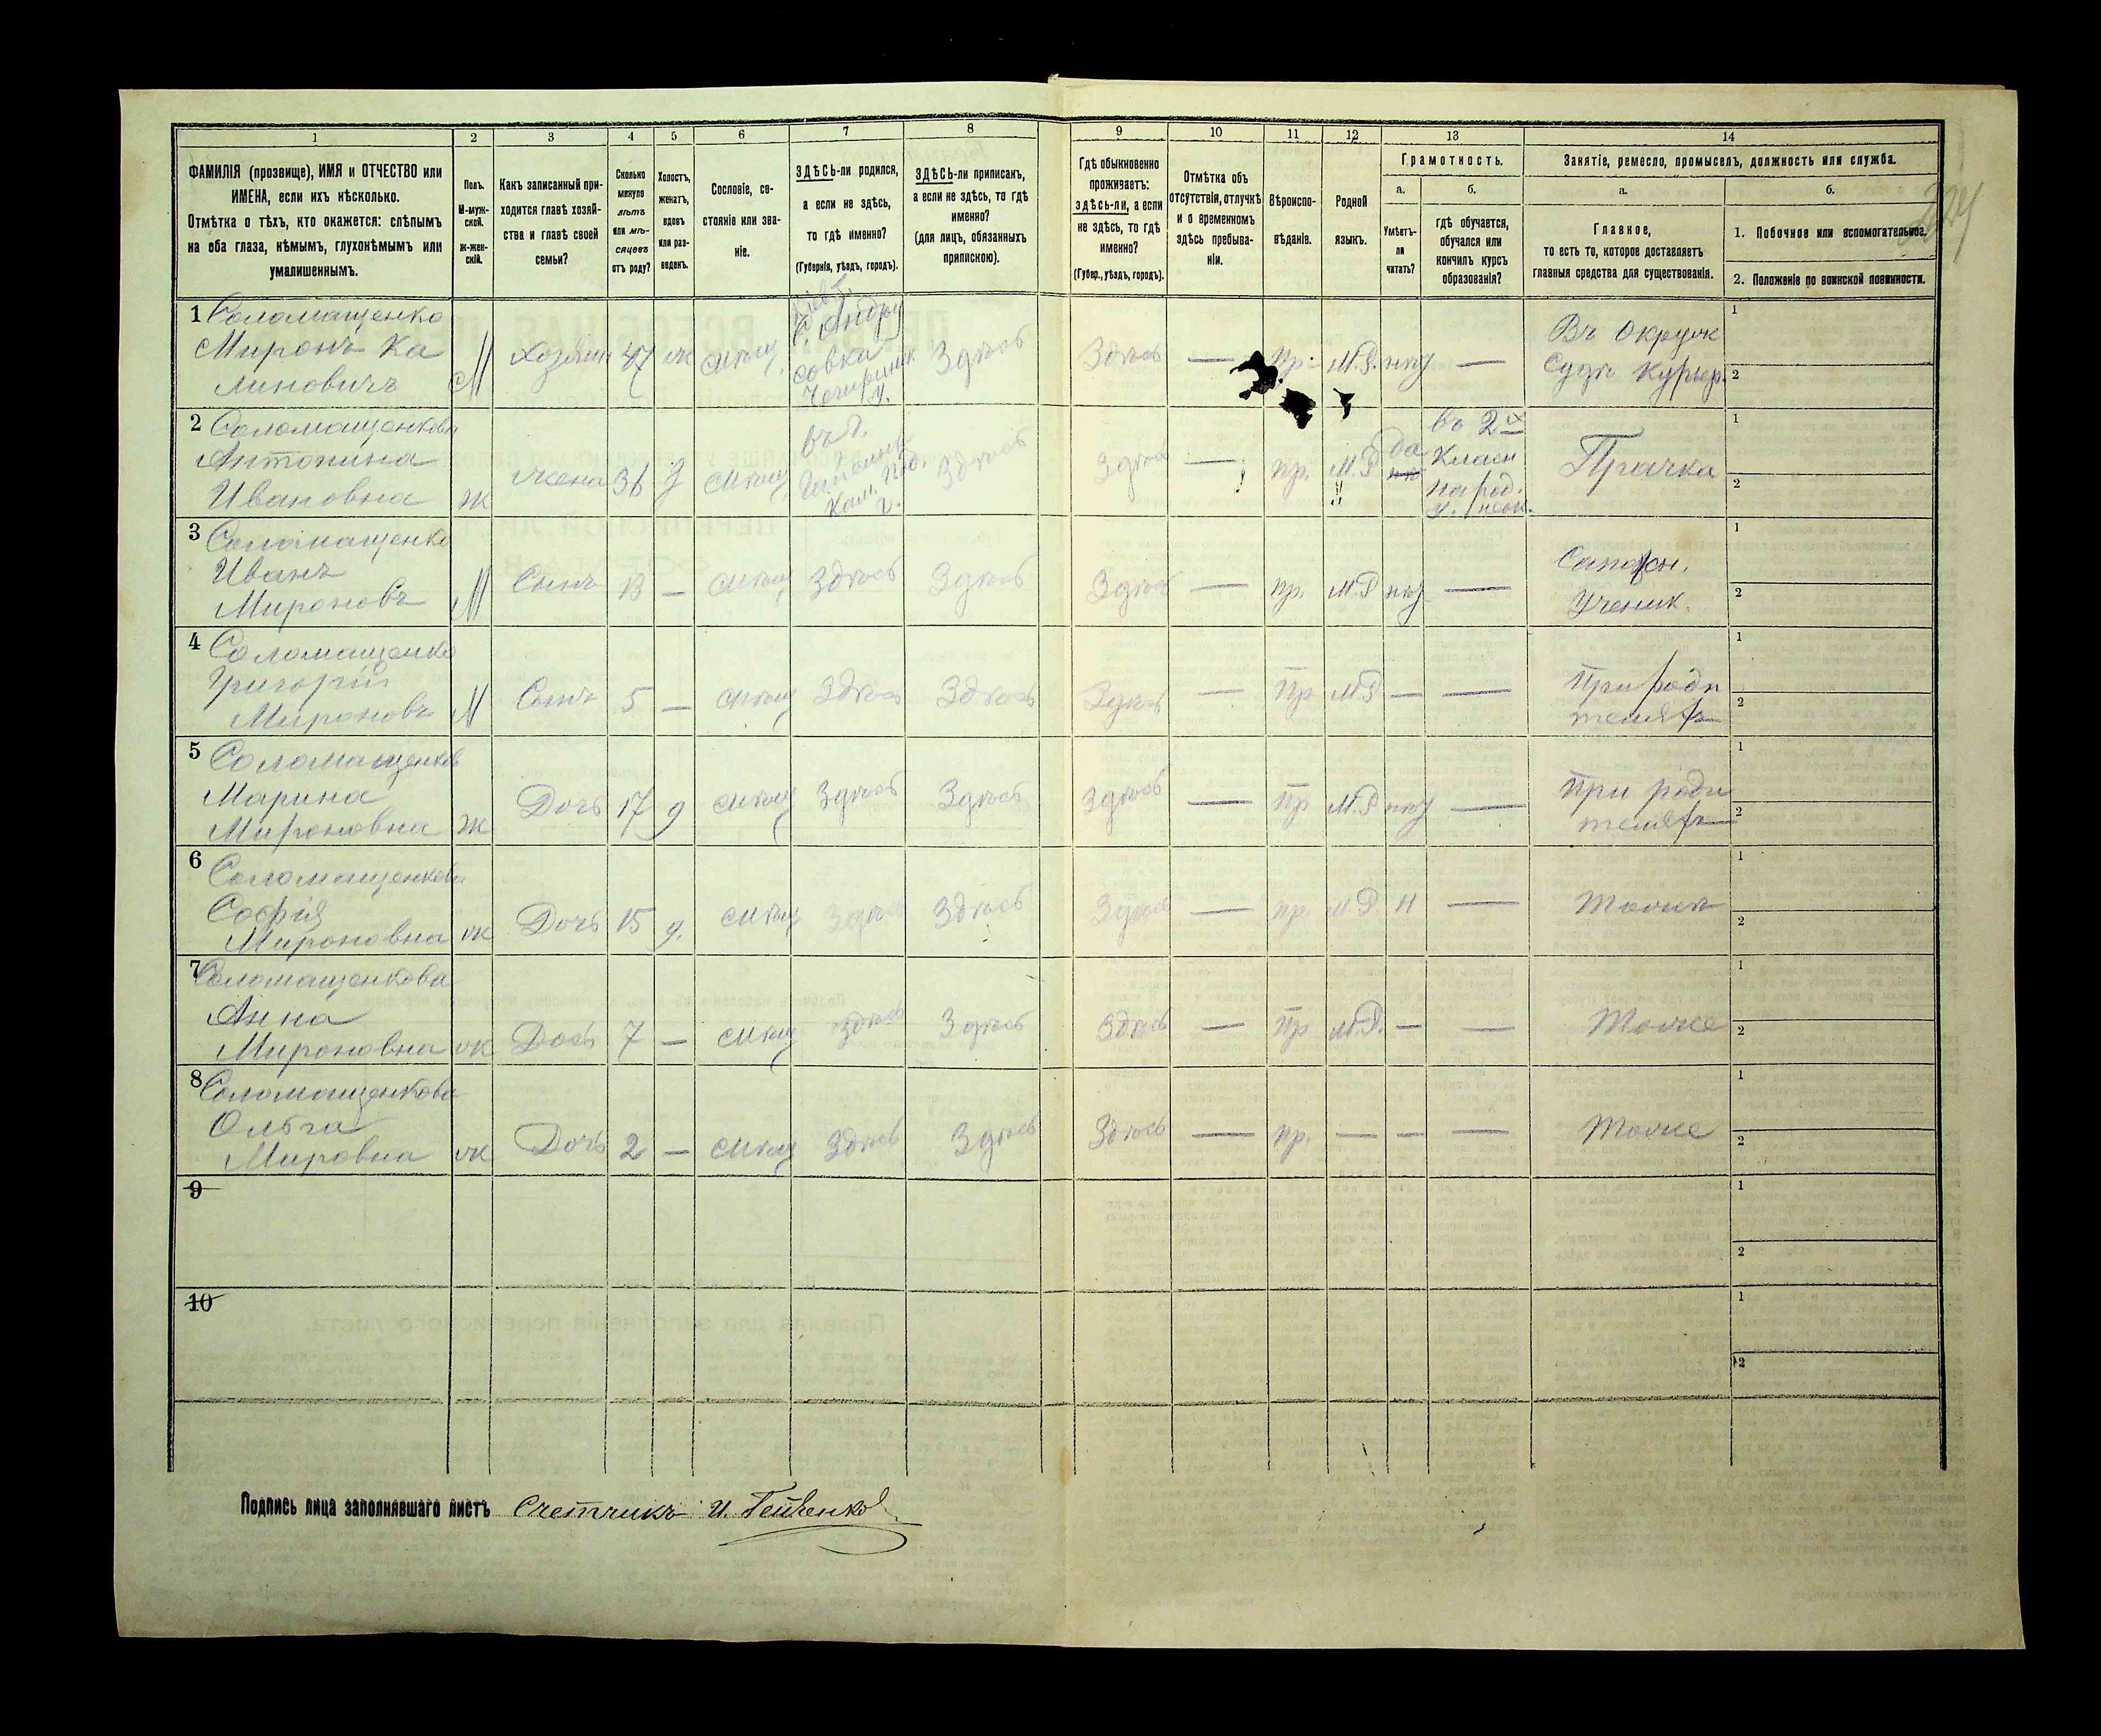 1 2 3 4 5 6 7 8 9 10 11 12 13 14
ФАМИЛІЯ (прозвище), ИМЯ и ОТЧЕСТВО или
ИМЕНА, если ихъ нѣсколько.
Отмѣтка о тѣхъ, кто окажется: слѣпымъ
на оба глаза, нѣмымъ, глухонѣмымъ или
умалишеннымъ.
Полъ.
М-муж-
ской.
Ж-жен-
скій.
Какъ записанный при-
ходится главѣ хозяй-
ства и главѣ своей
семьи?
Сколько
минуло
лѣтъ
или мѣ-
сяцевъ
отъ роду?
Холостъ,
женатъ,
вдовъ
или раз-
веденъ.
Сословіе, со-
стояніе или зва-
ніе.
ЗДѢСЬ-ли родился,
а если не здѣсь,
то гдѣ именно?
(Губернія, уѣздъ, городъ).
ЗДѢСЬ-ли приписанъ,
а если не здѣсь, то гдѣ
именно?
(для лицъ, обязанныхъ
припискою).
Гдѣ обыкновенно
проживаетъ:
здѣсь-ли, а если
не здѣсь, то гдѣ
именно?
(Губер., уѣздъ, городъ).
Отмѣтка объ
отсутствіи, отлучкѣ
и о временномъ
здѣсь пребыва-
ніи.
Вѣроиспо-
вѣданіе.
Родной
языкъ.
Грамотность.
а.
Умѣетъ-
ли
читать?
б.
гдѣ обучается,
обучался или
кончилъ курсъ
образованія?
Занятіе, ремесло, промыселъ, должность или служба.
а.
Главное,
то есть то, которое доставляетъ
главныя средства для существованія.
б.
1. Побочное или вспомогательное.
2. Положеніе по воинской повинности.
1 Соломащенко
Миронъ Ка
линовичъ
М
Хозяин 47 ж мѣщ.
Кіев. г.
с. Андру
совка
Чегиринск.
у.
Здѣсь
Здѣсь — пр. М.Р. нѣт —
Въ Окруж
Суде курьер.
1
2
2 Соломащенкова
Антонина
Ивановна
ж
жена 36 мѣщ
въ г.
Гайсинѣ
Кам. Под.
г.
Здѣсь
Здѣсь — пр. М.Р да
въ 2х
Класн
народ.
у. неок.
Прачка
1
2
3 Соломащенко
Иванъ
Мироновъ
М
Сынъ 13 — мѣщ Здѣсь Здѣсь
Здѣсь — пр. М.Р нѣт —
Сапожн.
Ученик.
1
2
4 Соломащенко
Григорій
Мироновъ
М
Сынъ 5 — мѣщ Здѣсь Здѣсь
Здѣсь — пр М.Р — —
При роди
теляхъ
1
2
5 Соломащенков
Марина
Мироновна
ж
Дочь 17 д мѣщ Здѣсь Здѣсь
Здѣсь — пр М.Р нѣт —
При роди
теляхъ
1
2
6 Соломащенкова
Софія
Мироновна
ж
Дочь 15 д. мѣщ Здѣсь Здѣсь
Здѣсь — пр. М.Р н —
1
2
7 Соломащенкова
Анна
Мироновна
ж
Дочь 7 — мѣщ Здѣсь Здѣсь
Здѣсь — пр М.Р. — —
Тоже
1
2
8 Соломащенкова
Ольга
Мировна
ж
Дочь 2 — мѣщ Здѣсь Здѣсь
Здѣсь — пр. — — —
Тоже
1
2
9
1
2
10
1
2
Подпись лица заполнявшаго листъ Счетчикъ И.